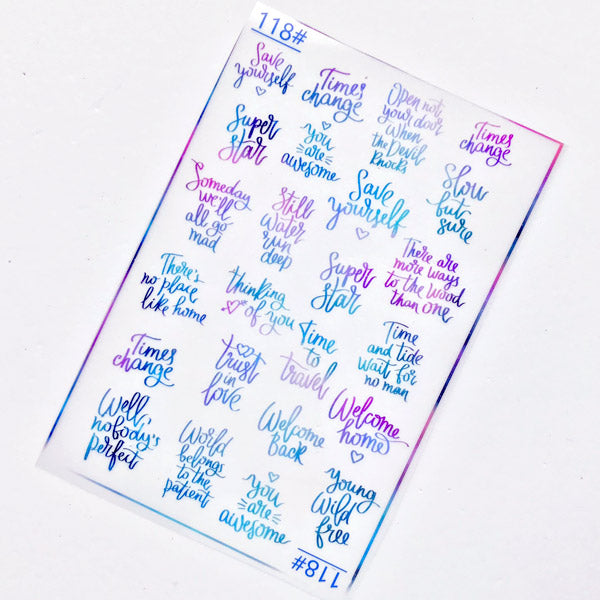 118#
Save
yourself
Times
change
Open not
your door
When
the Devil
Knocks
Times
change
Super
Star
you
are
awesome
Save
yourself
Slow
but
sure
Someday
we'll
all go
mad
Still
Water
run
deep
Super
Star
There are
more ways
to the Wood
than one
There's
no place
like home
thinking
of you
Time
to
travel
Time
and tide
wait for
no man
Times
change
trust
in
love
Welcome
home
Well,
nobody's
perfect
World
belongs
to the
patient
Welcome
Back
you
are
awesome
Young
Wild
free
118#